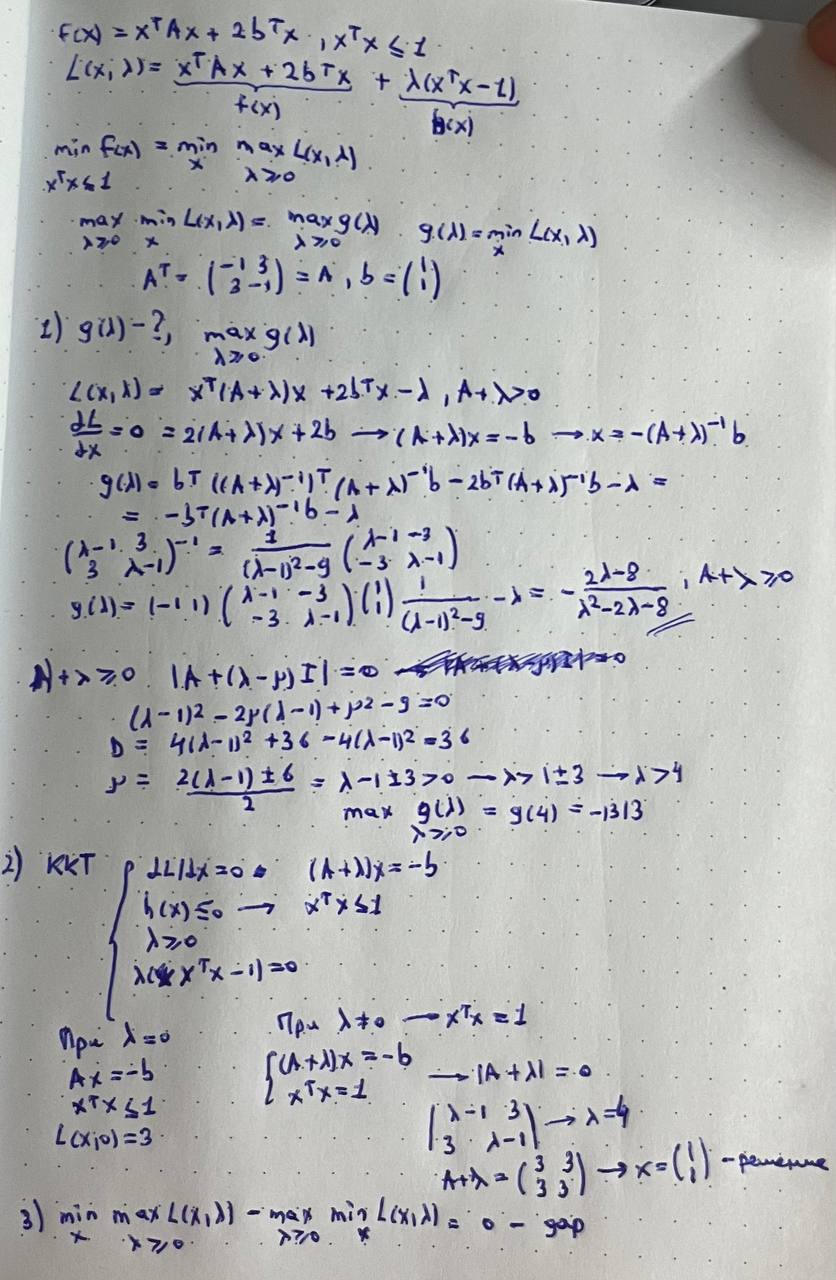 f(x) = xᵀAx + 2bᵀx , xᵀx ≤ 1
L(x, λ) = xᵀAx + 2bᵀx + λ(xᵀx - 1)
f(x) h(x)
min f(x) = min max L(x, λ)
xᵀx ≤ 1 x λ ≥ 0
max min L(x, λ) = max g(λ) g(λ) = min L(x, λ)
λ ≥ 0 x λ ≥ 0 x
Aᵀ = (-1 3; 3 -1) = A , b = (1; 1)
1) g(λ) - ?, max g(λ)
λ ≥ 0
L(x, λ) = xᵀ(A + λ)x + 2bᵀx - λ , A + λ > 0
dL/dx = 0 = 2(A + λ)x + 2b → (A + λ)x = -b → x = -(A + λ)⁻¹b
g(λ) = bᵀ((A + λ)⁻¹)ᵀ(A + λ)⁻¹b - 2bᵀ(A + λ)⁻¹b - λ =
= -bᵀ(A + λ)⁻¹b - λ
(λ-1 3; 3 λ-1)⁻¹ = 1/((λ-1)²-9) (λ-1 -3; -3 λ-1)
g(λ) = (-1 1) (λ-1 -3; -3 λ-1) (1; 1) 1/((λ-1)²-9) - λ = - (2λ-8)/(λ²-2λ-8) , A + λ ≥ 0
A + λ ≥ 0 |A + (λ - μ)I| = 0
(λ-1)² - 2μ(λ-1) + μ² - 9 = 0
D = 4(λ-1)² + 36 - 4(λ-1)² = 36
μ = (2(λ-1) ± 6)/2 = λ - 1 ± 3 > 0 → λ > 1 ± 3 → λ > 4
max g(λ) = g(4) = -13/3
λ ≥ 0
2) KKT { dL/dx = 0 (A + λ)x = -b
h(x) ≤ 0 → xᵀx ≤ 1
λ ≥ 0
λ(xᵀx - 1) = 0
При λ = 0 При λ ≠ 0 → xᵀx = 1
Ax = -b {(A + λ)x = -b → |A + λ| = 0
xᵀx ≤ 1 xᵀx = 1
L(x, 0) = 3 |λ-1 3; 3 λ-1| → λ = 4
A + λ = (3 3; 3 3) → x = (1; 1) - решение
3) min max L(x, λ) - max min L(x, λ) = 0 - gap
x λ ≥ 0 λ ≥ 0 x